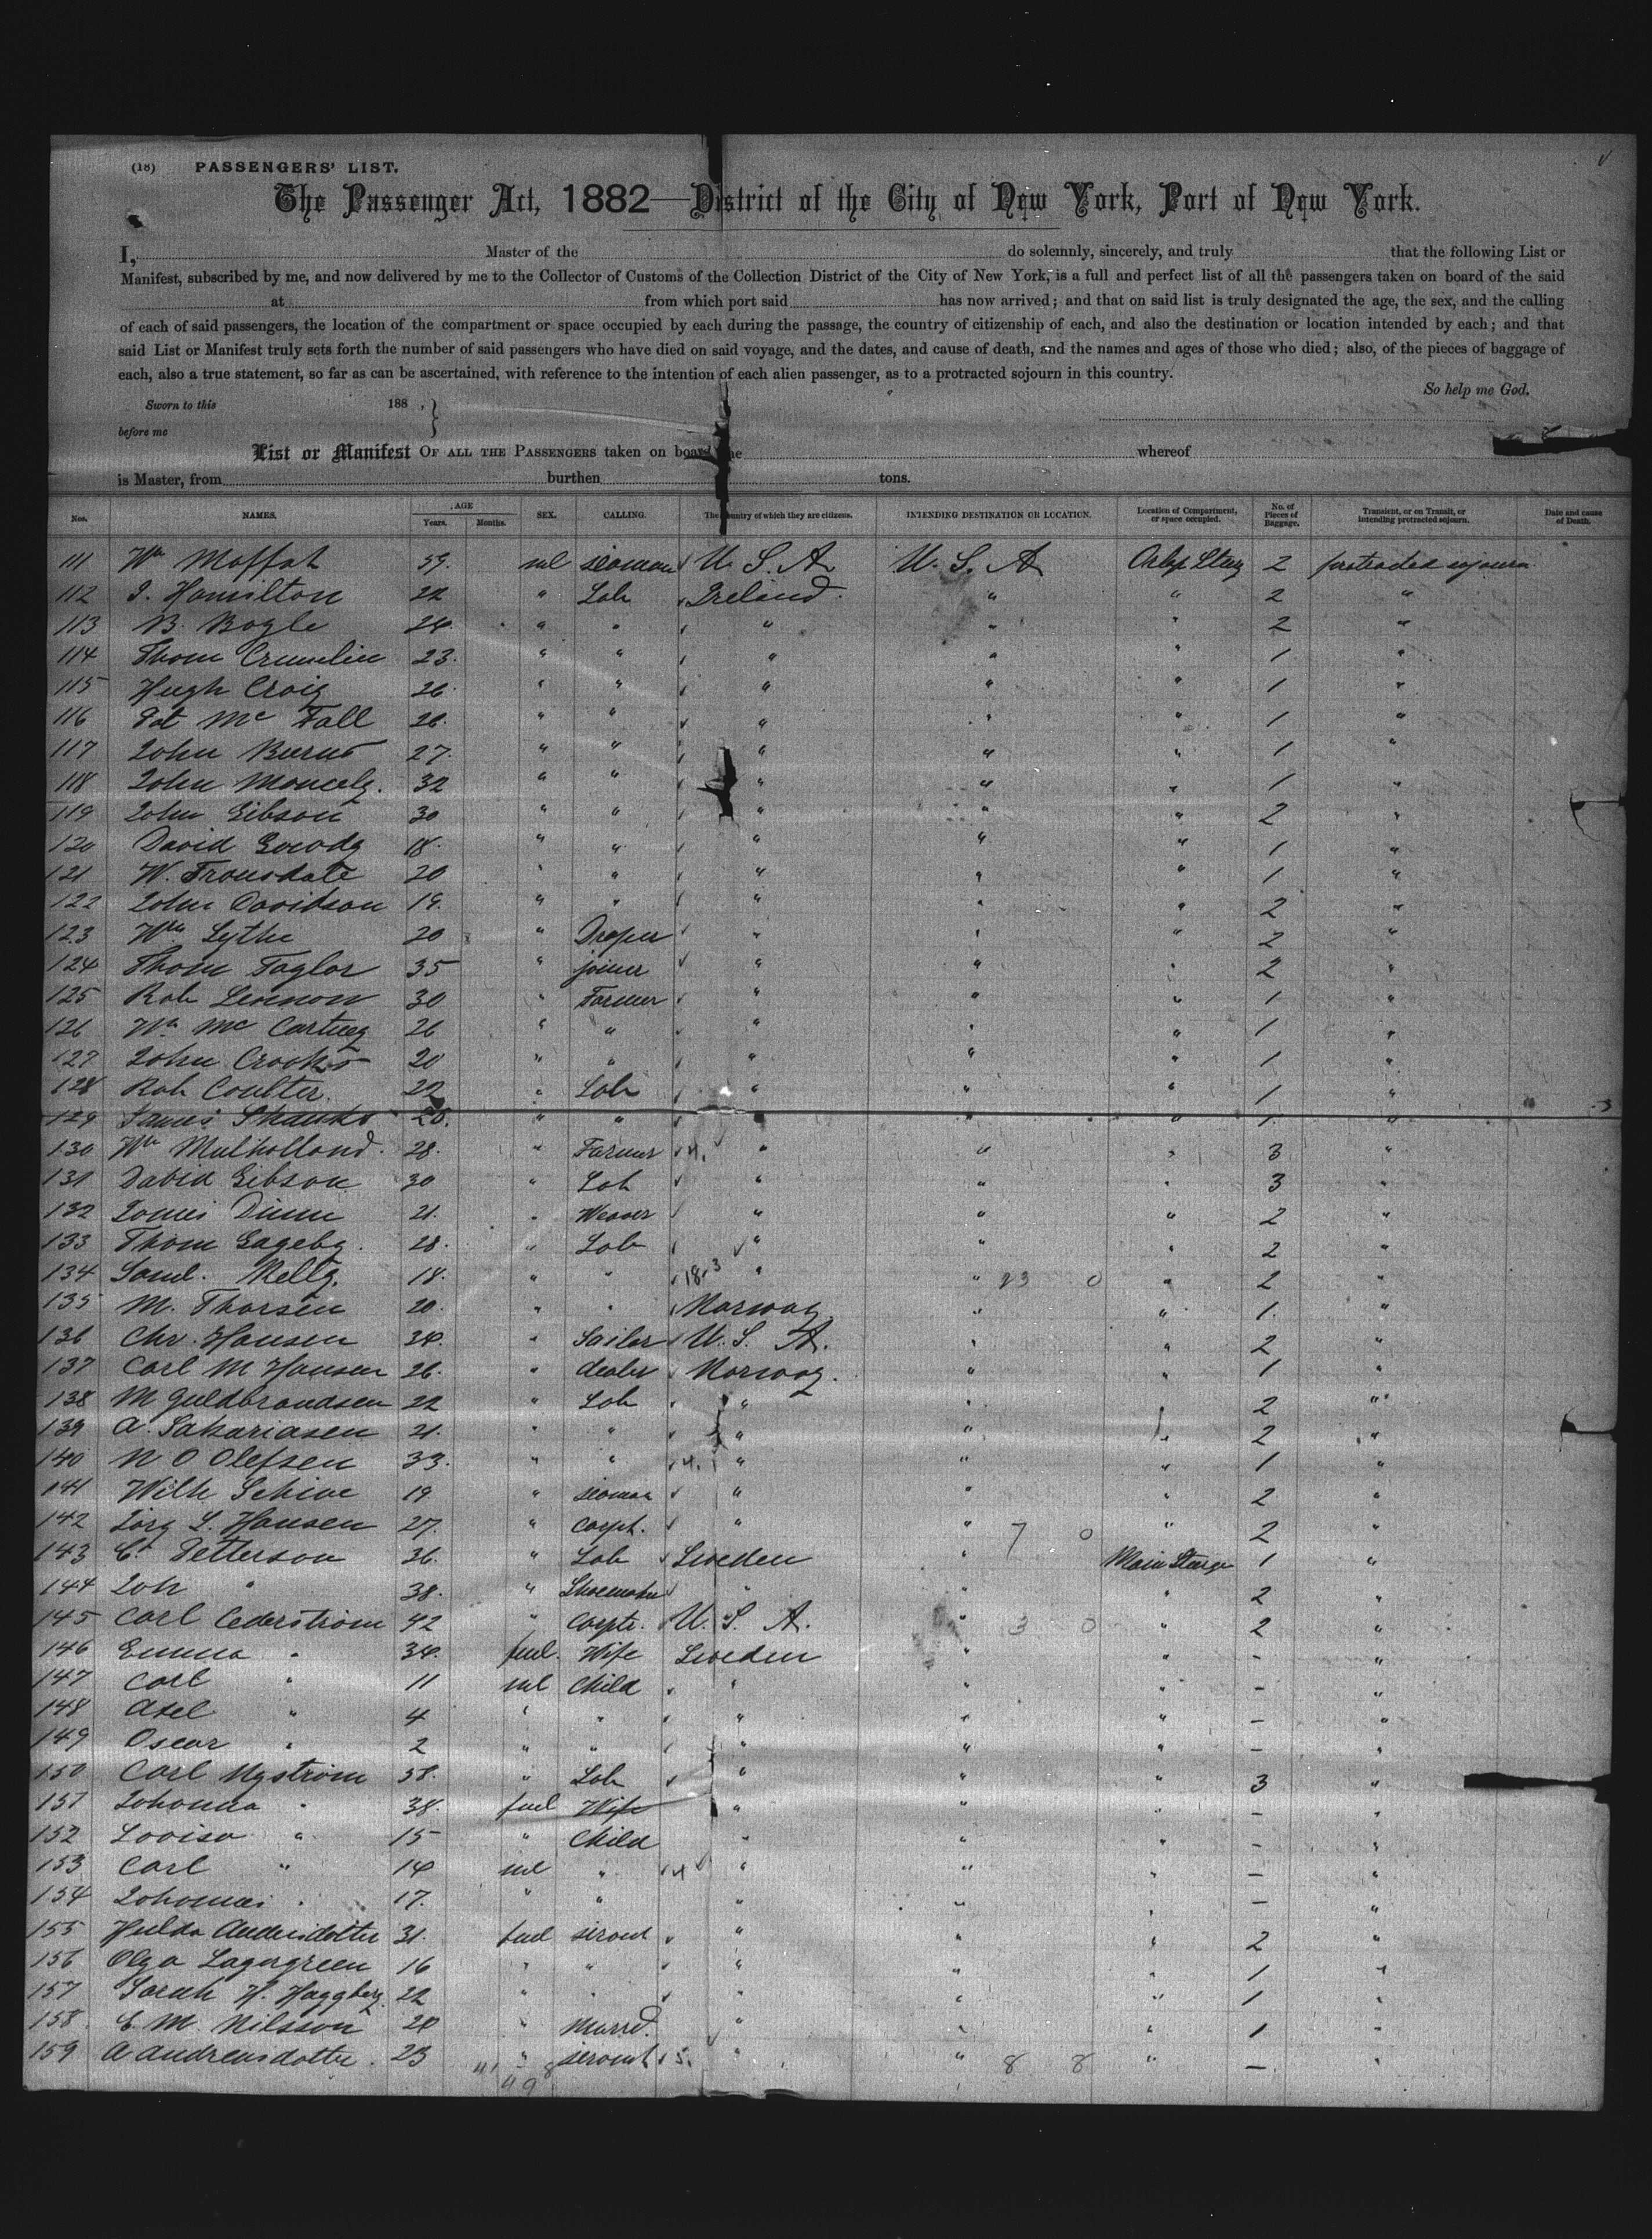 (18) PASSENGERS' LIST.
The Passenger Act, 1882—District of the City of New York, Port of New York.
I, Master of the do solemnly, sincerely, and truly that the following List or
Manifest, subscribed by me, and now delivered by me to the Collector of Customs of the Collection District of the City of New York, is a full and perfect list of all the passengers taken on board of the said
at from which port said has now arrived; and that on said list is truly designated the age, the sex, and the calling
of each of said passengers, the location of the compartment or space occupied by each during the passage, the country of citizenship of each, and also the destination or location intended by each; and that
said List or Manifest truly sets forth the number of said passengers who have died on said voyage, and the dates, and cause of death, and the names and ages of those who died; also, of the pieces of baggage of
each, also a true statement, so far as can be ascertained, with reference to the intention of each alien passenger, as to a protracted sojourn in this country.
So help me God.
Sworn to this 188 , }
before me
List or Manifest OF ALL THE PASSENGERS taken on board the whereof
is Master, from burthen tons.
Nos. NAMES. AGE Years. Months. SEX. CALLING. The Country of which they are citizens. INTENDING DESTINATION OR LOCATION. Location of Compartment, or space occupied. No. of Pieces of Baggage. Transient, or on Transit, or intending protracted sojourn. Date and cause of Death.
111 Wm Moffat 59. ml seaman U. S. A. U. S. A. 2 protracted sojourn
112 J. Hamilton 22 " Lab Ireland. " " 2 "
113 B. Bogle 24. " " " " " 2 "
114 Thom Crumlin 23. " " " " " 1 "
115 Hugh Craig 26. " " " " " 1 "
116 Pat Mc Fall 26. " " " " " 1 "
117 John Burns 27. " " " " " 1 "
118 John 32 " " " " " 1 "
119 John Gibson 30 " " " " " 2 "
120 David 18. " " " " " 1 "
121 W. Trousdale 20 " " " " " 1 "
122 John Davidson 19. " " " " " 2 "
123 Wm Lythe 20 " Draper " " " 2 "
124 Thom Taylor 35 " joiner " " " 2 "
125 Rob Lennon 30 " Farmer " " " 1 "
126 Wm Mc Cartney 26 " " " " " 1 "
127 John Crooks 20 " " " " " 1 "
128 Rob Coulter. 22 " Lab " " " 1 "
129 James Shanks 20. " " " " " 1 "
130 Wm Mulholland. 28. " Farmer 4. " " " 3 "
131 David Gibson 30 " Lab " " " 3 "
132 James Dunn 21. " Weaver " " " 2 "
133 Thom Gageby. 28. " Lab " " " 2 "
134 Saml. Kelly. 18. " " 18-3 " " 23 0 " 2 "
135 M. Thorsen 20. " " Norway " " 1. "
136 Chr. Hansen 34. " Sailor U. S. A. " " 2 "
137 Carl M Hansen 26. " dealer Norway. " " 1 "
138 M Guldbrandsen 22 " Lab " " " 2 "
139 A. Sakariasen 21. " " " " " 2 "
140 N O Olefsen 33. " " 4. " " " 1 "
141 Wilh Schive 19 " seaman " " " 2 "
142 Jörg L. Hansen 27. " Carpt. " " 7 0 " 2 "
143 C. Petterson 36. " Lab Sweden " Main Steerge 1 "
144 Joh " 38. " Shoemaker " " " 2 "
145 Carl Cederström 42 " Carpte. U. S. A. " 3 0 " 2 "
146 Emma " 34. feml. Wife Sweden " " - "
147 Carl " 11 ml Child " " " - "
148 Axel " 4 " " " " " - "
149 Oscar " 2 " " " " " - "
150 Carl Nyström 58. " Lab " " " 3 "
151 Johanna " 38. feml Wife " " " - "
152 Lovisa " 15 " Child " " " - "
153 Carl " 14 ml " 4 " " " - "
154 " 17. " " " " " - "
155 Hulda Andersdotter 31. feml servant " " " 2 "
156 Olga Lagergreen 16 " " " " " 1 "
157 Sarah H. Haggberg 22 " " " " " 1 "
158. E. M. Nilsson 20 " Marrd. " " " 1 "
159 A Andreasdotter. 23 " servant 5. " " 8 8 " - "
41 - 8
49